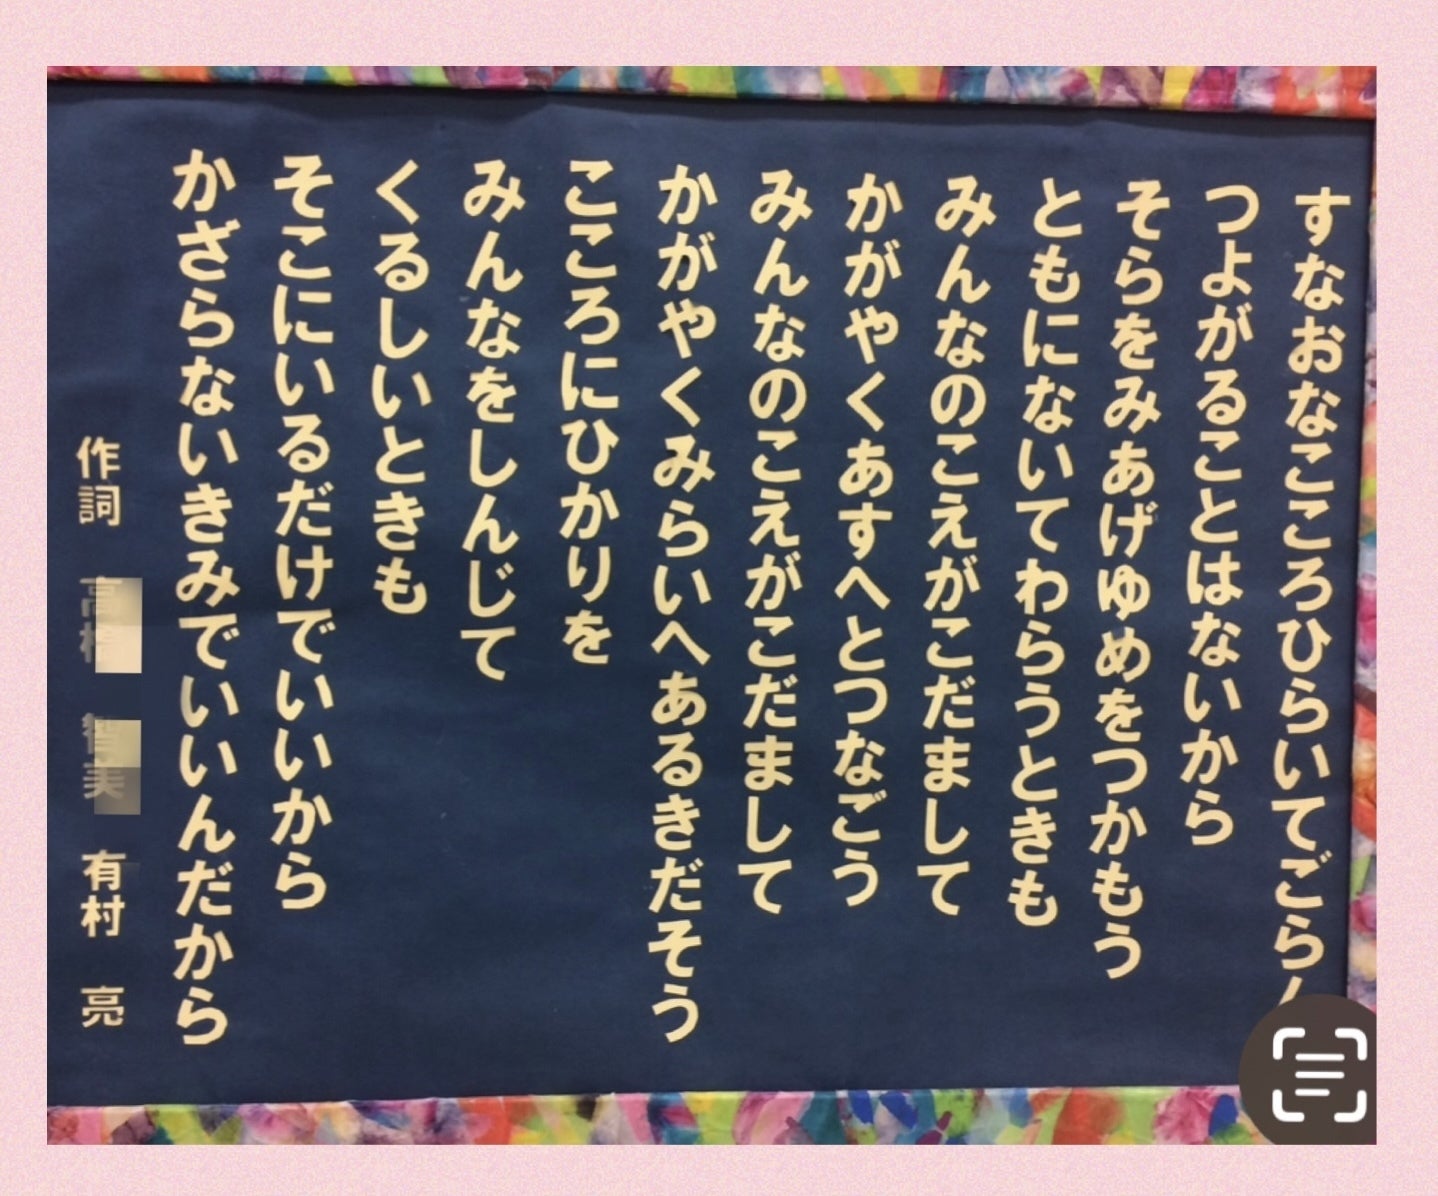 すなおなこころひらいてごらん
つよがることはないから
そらをみあげゆめをつかもう
ともにないてわらうときも
みんなのこえがこだまして
かがやくあすへとつなごう
みんなのこえがこだまして
かがやくみらいへあるきだそう
こころにひかりを
みんなをしんじて
くるしいときも
そこにいるだけでいいから
かざらないきみでいいんだから
作詞 有村 亮